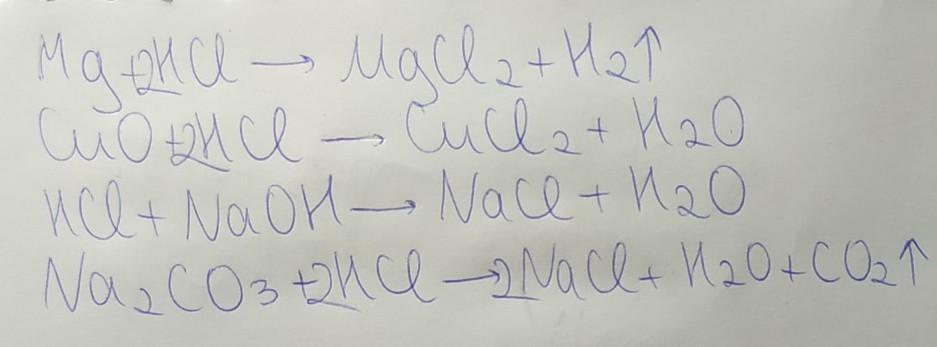 Mg+2HCl → MgCl₂+H₂↑
CuO+2HCl → CuCl₂+H₂O
HCl+NaOH → NaCl+H₂O
Na₂CO₃+2HCl → 2NaCl+H₂O+CO₂↑